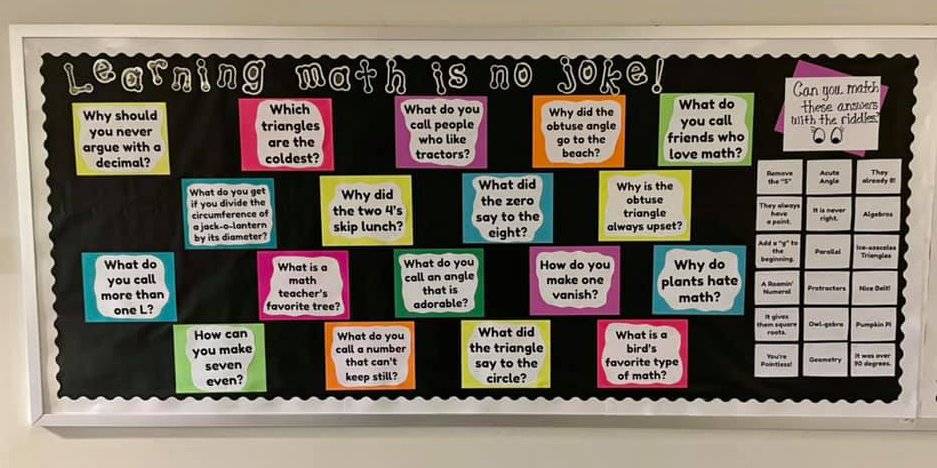 Learning math is no joke!
Why should
you never
argue with a
decimal?
Which
triangles
are the
coldest?
What do you
call people
who like
tractors?
Why did the
obtuse angle
go to the
beach?
What do
you call
friends who
love math?
What do you get
if you divide the
circumference of
a jack-o-lantern
by its diameter?
Why did
the two 4's
skip lunch?
What did
the zero
say to the
eight?
Why is the
obtuse
triangle
always upset?
What do
you call
more than
one L?
What is a
math
teacher's
favorite tree?
What do you
call an angle
that is
adorable?
How do you
make one
vanish?
Why do
plants hate
math?
How can
you make
seven
even?
What do you
call a number
that can't
keep still?
What did
the triangle
say to the
circle?
What is a
bird's
favorite type
of math?
Can you match
these answers
with the riddles?
Remove
the "S"
Acute
Angle
They
already 8!
They always
have
a point.
It is never
right.
Algebros
Add a "g" to
the
beginning.
Parallel
Ice-sosceles
Triangles
A Roamin'
Numeral
Protractors
Nice Belt!
It gives
them square
roots.
Owl-gebra
Pumpkin Pi
You're
Pointless!
Geometry
It was over
90 degrees.